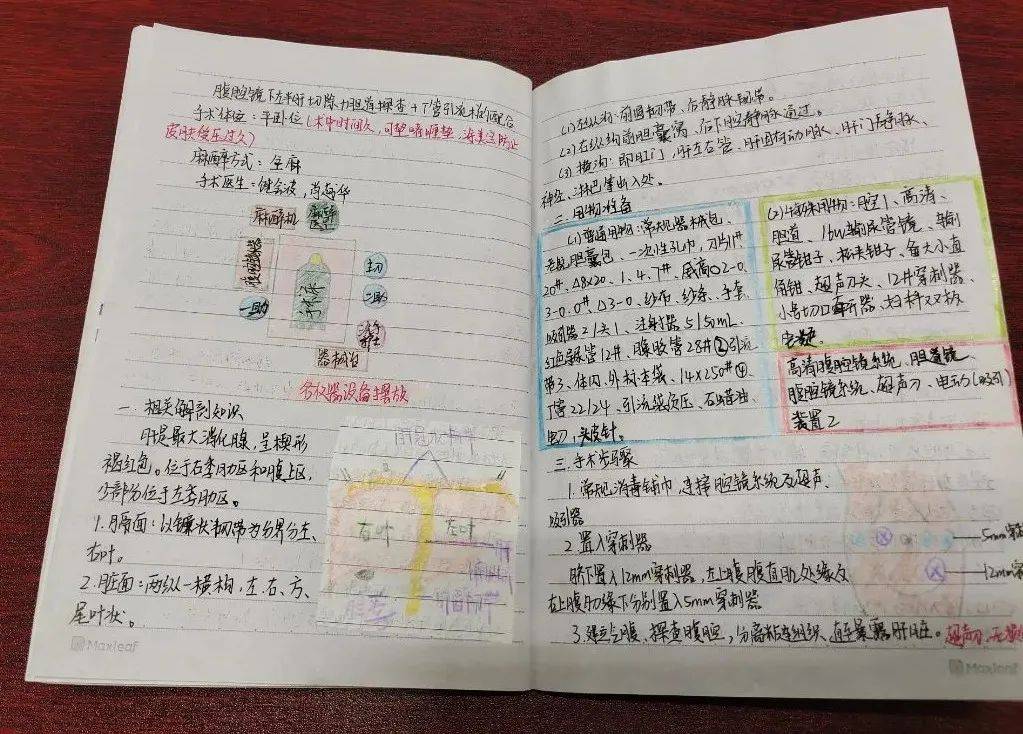 腹腔镜下左半肝切除+胆道探查+T管引流术的配合
手术体位：平卧位(术中时间久，可垫啫喱垫 海美兰防止
皮肤受压过久)
麻醉方式：全麻
手术医生：
麻醉机 麻醉医生
主刀
一助 二助
器械台
各仪器设备摆放
一、相关解剖知识
肝是最大消化腺，呈楔形
褐红色。位于右季肋区和腹上区，
少部分位于左季肋区。
1.膈面：以镰状韧带为分界分左、
右叶。
2.脏面：两纵一横构，左、右、方、
尾叶状。
右叶 左叶
胆囊
Maxleaf
(1)左纵沟：前圆韧带，后静脉韧带。
(2)右纵沟前胆囊窝、后下腔静脉通过。
(3)横沟：即肛门，肝左右管、肝固有动脉、肝门静脉、
神经、淋巴管出入处。
二、用物准备
(1)普通用物：常规器械包、
胆囊包、一次性孔巾，刀片11#
20#、Δ8x20、1、4、7#、威高O2-0、
3-0、0#、Δ3-0、纱布、纱条、手套
吸引器2 头1、注射器5/50mL
红色尿管12#、腹腔管28#②引流
袋3、14x250#④
T管22/24、引流袋负压、石蜡油
头皮针。
(2)特殊用物：腔1、高清、
胆道、输尿管镜、输
尿管钳子、松夹钳子、备大小直
角钳、超声刀头、12#穿刺器、
小号切口牵开器、扫杆双极
电凝
高清腹腔镜系统、胆道镜
腹腔镜系统、超声刀、电动(吸引)
装置2
三、手术步骤
1.常规消毒铺巾，连接腔镜系统及超声、
吸引器
2.置入穿刺器
脐下置入12mm穿刺器，左上腹腹直肌处缘及
右上腹肋缘下分别置入5mm穿刺器
5mm
12mm
3.建立气腹、探查腹腔，分离粘连组织、直至暴露肝脏。超声刀，
Maxleaf